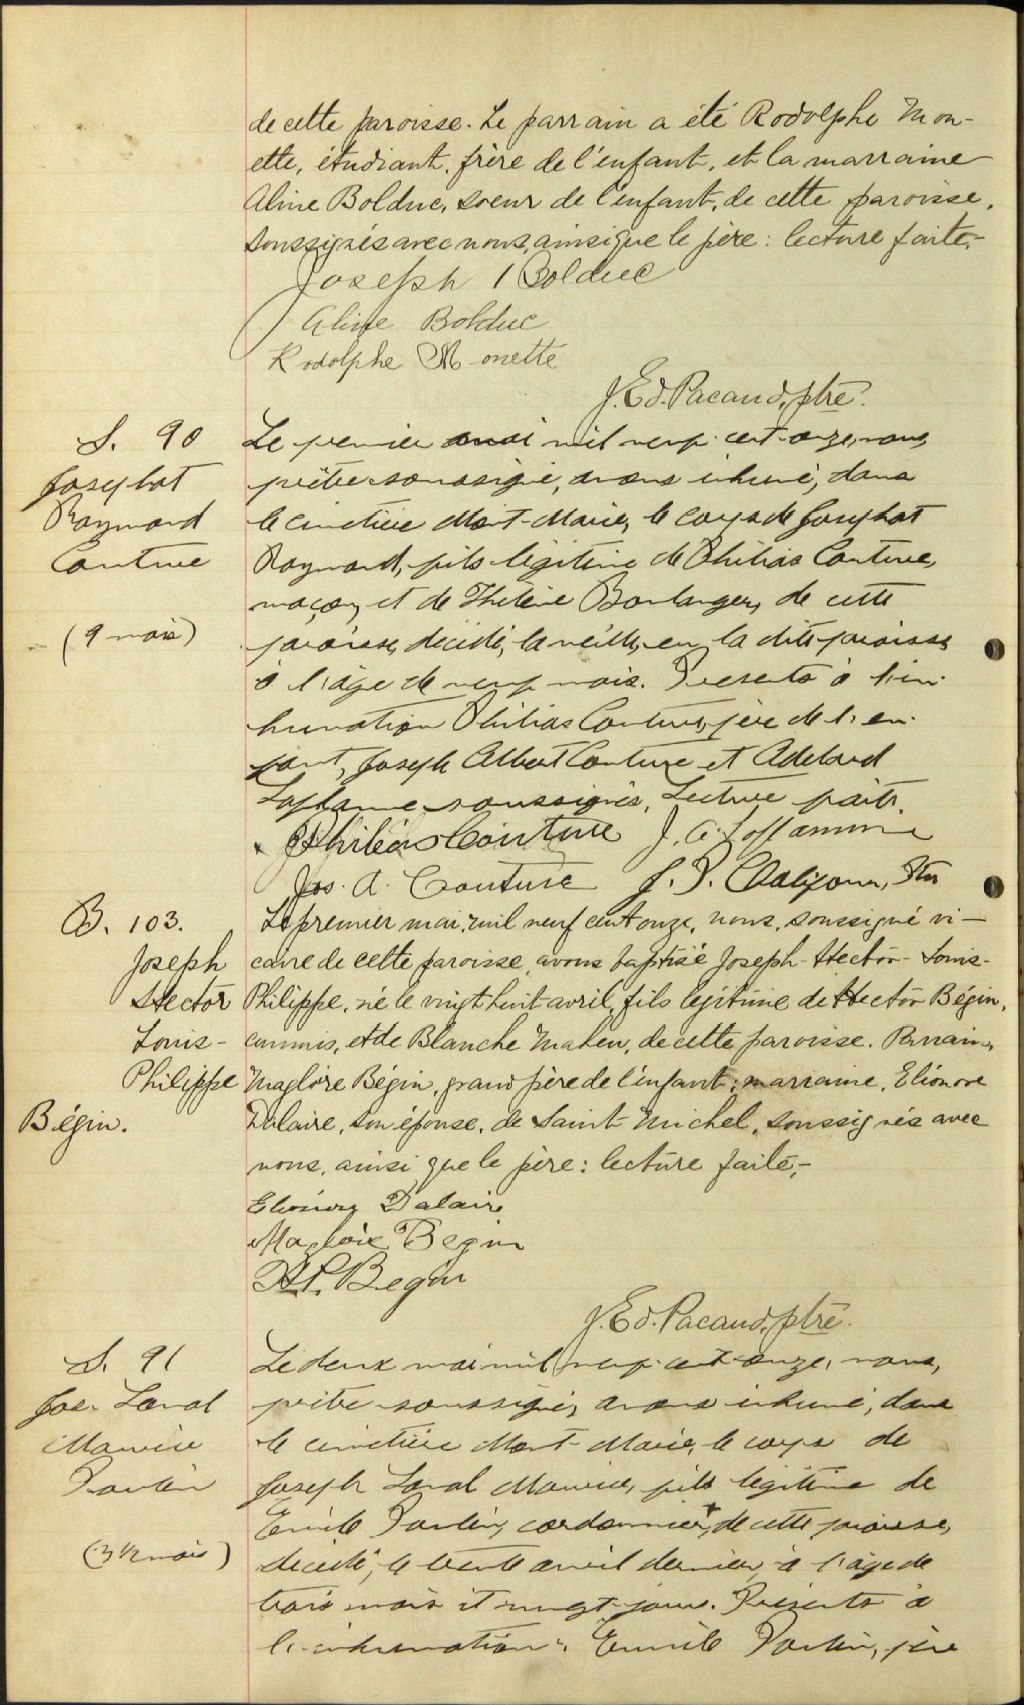 de cette paroisse. Le parrain a été Rodolphe Mon-
ette, étudiant, frère de l'enfant, et la marraine
Aline Bolduc, soeur de l'enfant, de cette paroisse,
soussignés avec nous, ainsi que le père : lecture faite.-
Joseph Bolduc
Aline Bolduc
Rodolphe Monette
J. Ed. Pacaud, ptre.
S. 90
Josaphat
Raymond
Couture
(9 mois)
Le premier mai mil neuf cent onze, nous,
prêtre soussigné, avons inhumé, dans
le cimetière Mont-Marie, le corps de Josaphat
Raymond, fils légitime de Philias Couture,
maçon, et de Boulanger, de cette
paroisse, décédé, la veille, en la dite paroisse
à l'âge de neuf mois. Présents à l'in-
humation Philias Couture, père de l'en-
fant, Joseph Albert Couture et Adelard
Laflamme soussignés. Lecture faite.
Philéas Couture J. A. Laflamme
Jos. A. Couture
B. 103.
Joseph
Hector
Louis-
Philippe
Bégin.
Le premier mai, mil neuf cent onze, nous, soussigné vi-
caire de cette paroisse, avons baptisé Joseph-Hector-Louis-
Philippe, né le vingt huit avril, fils légitime de Hector Bégin,
commis, et de Blanche Maheu, de cette paroisse. Parrain,
Magloire Bégin, grand père de l'enfant ; marraine, Eléonore
Dalaire, son épouse, de Saint-Michel, soussignés avec
nous, ainsi que le père : lecture faite,-
Dalaire
Magloire Begin
Begin
J. Ed. Pacaud, ptre.
S. 91
Jos. Laval
Maurice
Poulin
(3 1/2 mois)
Le deux mai mil neuf cent onze, nous,
prêtre soussigné, avons inhumé, dans
le cimetière Mont-Marie, le corps de
Joseph Laval Maurice, fils légitime de
Emile Poulin, cordonnier, de cette paroisse,
décédé, le trente avril dernier, à l'âge de
trois mois et vingt jours. Présents à
l'inhumation : Emile Poulin, père